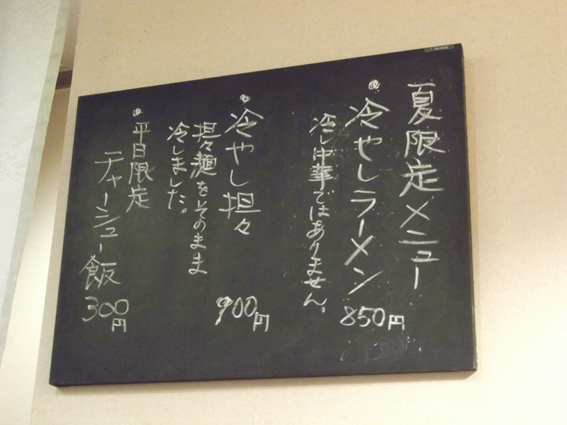 夏限定メニュー
冷やしラーメン
冷し中華ではありません。
850円
冷やし担々
担々麺をそのまま
冷しました。
900円
平日限定
チャーシュー飯
300円